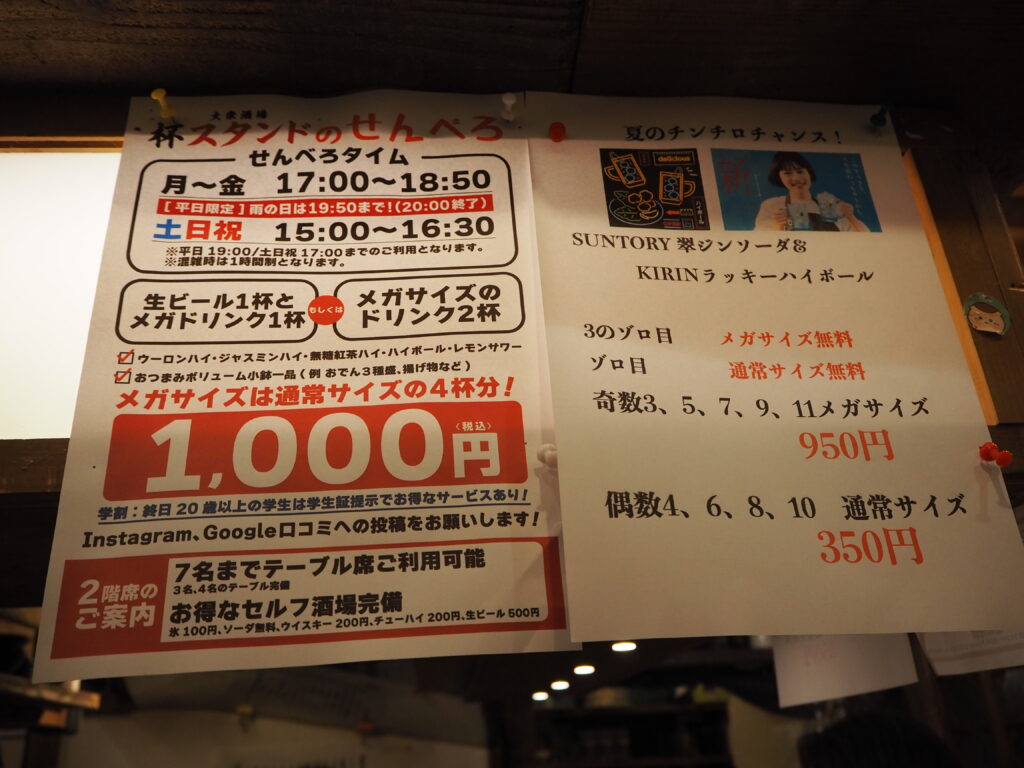 大衆酒場
杯スタンドのせんべろ
せんべろタイム
月～金 17:00～18:50
[平日限定] 雨の日は19:50まで!(20:00終了)
土日祝 15:00～16:30
※平日 19:00/土日祝 17:00までのご利用となります。
※混雑時は1時間制となります。
生ビール1杯と
メガドリンク1杯
もしくは
メガサイズの
ドリンク2杯
ウーロンハイ・ジャスミンハイ・無糖紅茶ハイ・ハイボール・レモンサワー
おつまみボリューム小鉢一品(例 おでん3種盛、揚げ物など)
メガサイズは通常サイズの4杯分!
1,000円
〈税込〉
学割:終日20歳以上の学生は学生証提示でお得なサービスあり!
Instagram、Google口コミへの投稿をお願いします!
2階席の
ご案内
7名までテーブル席ご利用可能
3名、4名のテーブル完備
お得なセルフ酒場完備
氷100円、ソーダ無料、ウイスキー200円、チューハイ200円、生ビール500円
夏のチンチロチャンス!
delicious
新
SUNTORY 翠ジンソーダ&
KIRINラッキーハイボール
3のゾロ目 メガサイズ無料
ゾロ目 通常サイズ無料
奇数3、5、7、9、11メガサイズ
950円
偶数4、6、8、10 通常サイズ
350円